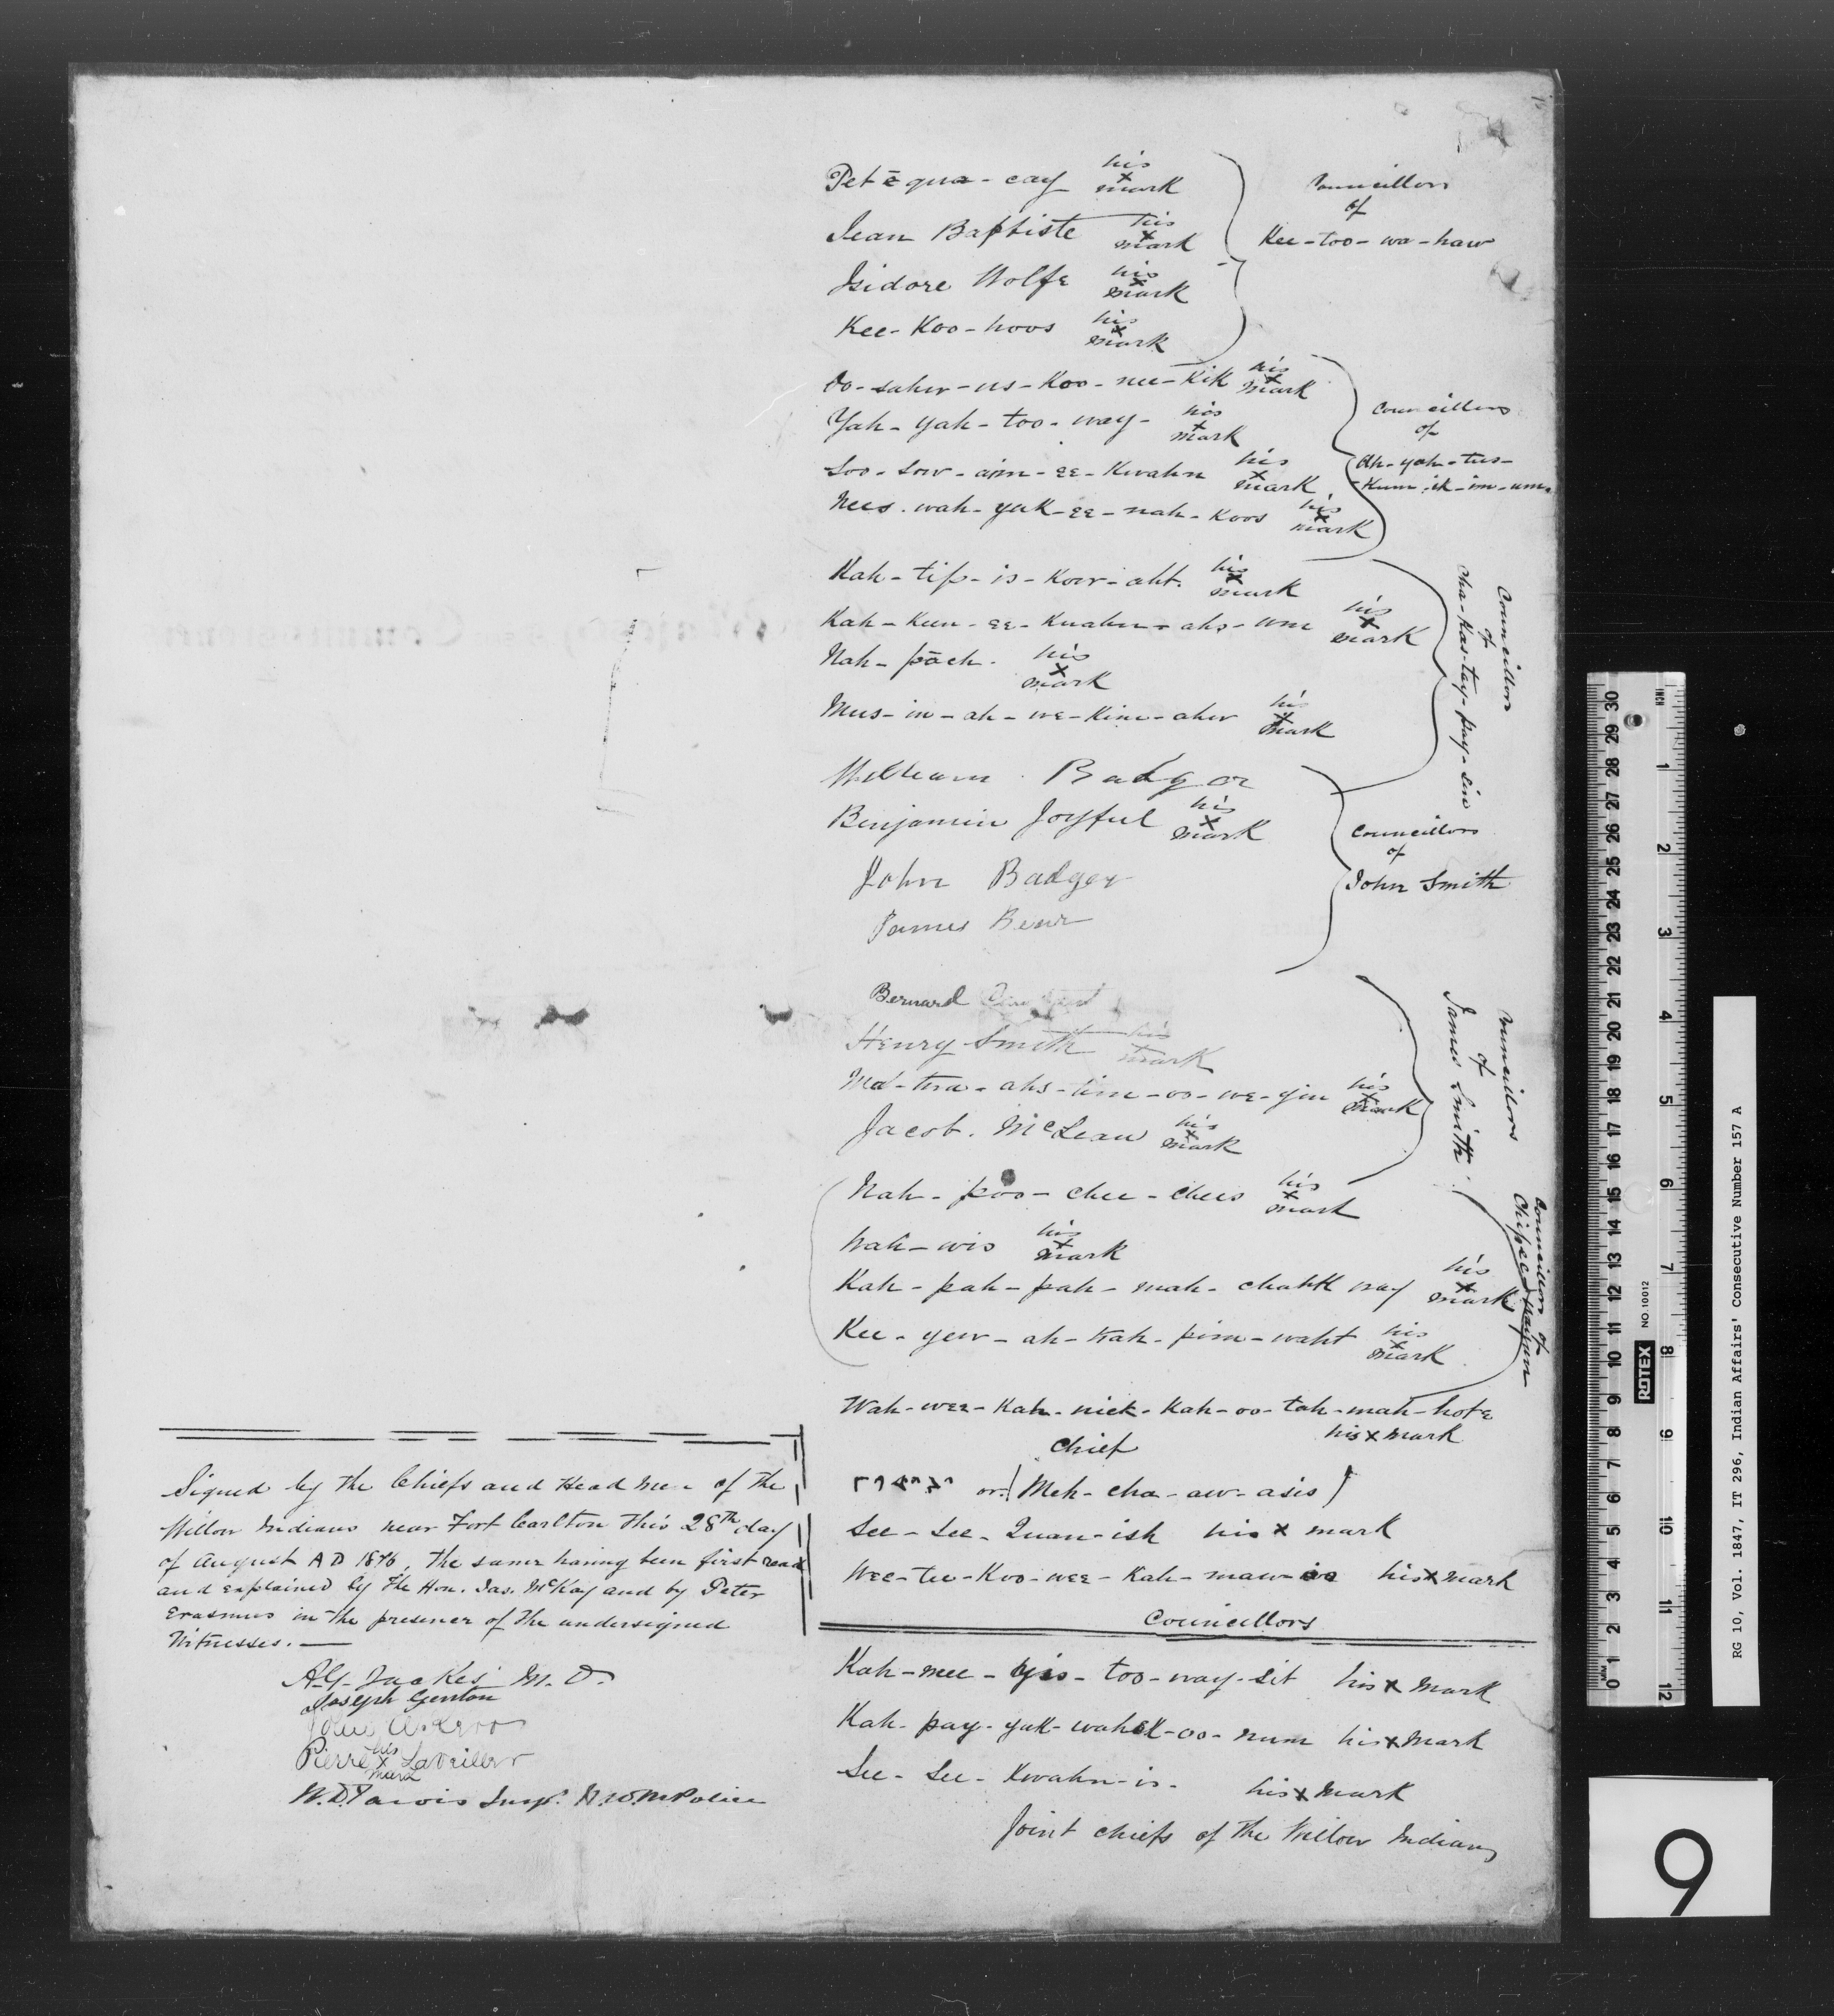 Pet ē qua - cay his x mark
Jean Baptiste his x mark
Isidore Wolfe his x mark
Kee - Koo - hoos his x mark
Councillors
of
Kee - too - wa - haw
Oo - sahw - us - Koo - nee - Kik his x mark
Yah - yah - too - way - his x mark
Soo - sow - aim - ee - Kwahn his x mark
Nees - wah - yak - ee - nah - Koos his x mark
Councillors
of
Ah - yah - tus -
Kum - ik - im - um
Kah - tip - is - Kow - aht. his x mark
Kah - Kew - ee - Kwahn - ahs - um his x mark
Nah - pāch. his x mark
Mus - in - ah - ne - Kim - ahw his x mark
Councillors
of
Cha - Kas - tay - pay - sin
William Badger
Benjamin Joyful his x mark
John Badger
James Bear
Councillors
of
John Smith
Bernard
Henry Smith his x mark
Ma - twa - ahs - tim - oo - we - gin his x mark
Jacob. McLean his x mark
Councillors
of
James Smith.
Nah - poo - chee - chees his x mark
Nah - wis his x mark
Kah - pah - pah - mah - chahk way his x mark
Kee - yew - ah - Kah - pim - waht his x mark
Councillors of
Chipeewayan
Wah - wee - Kah - nick - Kah - oo - tah - mah - hote
his x mark
Chief
ᒥᒉᐊᐧᓯᐢ or (Meh - cha - aw - asis)
See - See - Quan - ish his x mark
Wee - tee - Koo - wee - Kah - maw his x mark
Councillors
Kah - nee - yis - too - way - sit his x Mark
Kah - pay - yak - wahsk - oo - num his x Mark
See - See - Kwahn - is - his x Mark
Joint chiefs of the Willow Indians
Signed by the Chiefs and Head Men of the
Willow Indians near Fort Carlton this 28th day
of August A D 1876, the same having been first read
and explained by the Hon. Jas. McKay and by Peter
Erasmus in the presence of the undersigned
Witnesses. —
A.G. Jackes M. D.
Joseph Genton
Pierre his x mark Laveiller
W.D. Jarvis Insp. N.W.M Police
INCH
MM
ROTEX NO. 10012
RG 10, Vol. 1847, IT 296, Indian Affairs' Consecutive Number 157 A
9